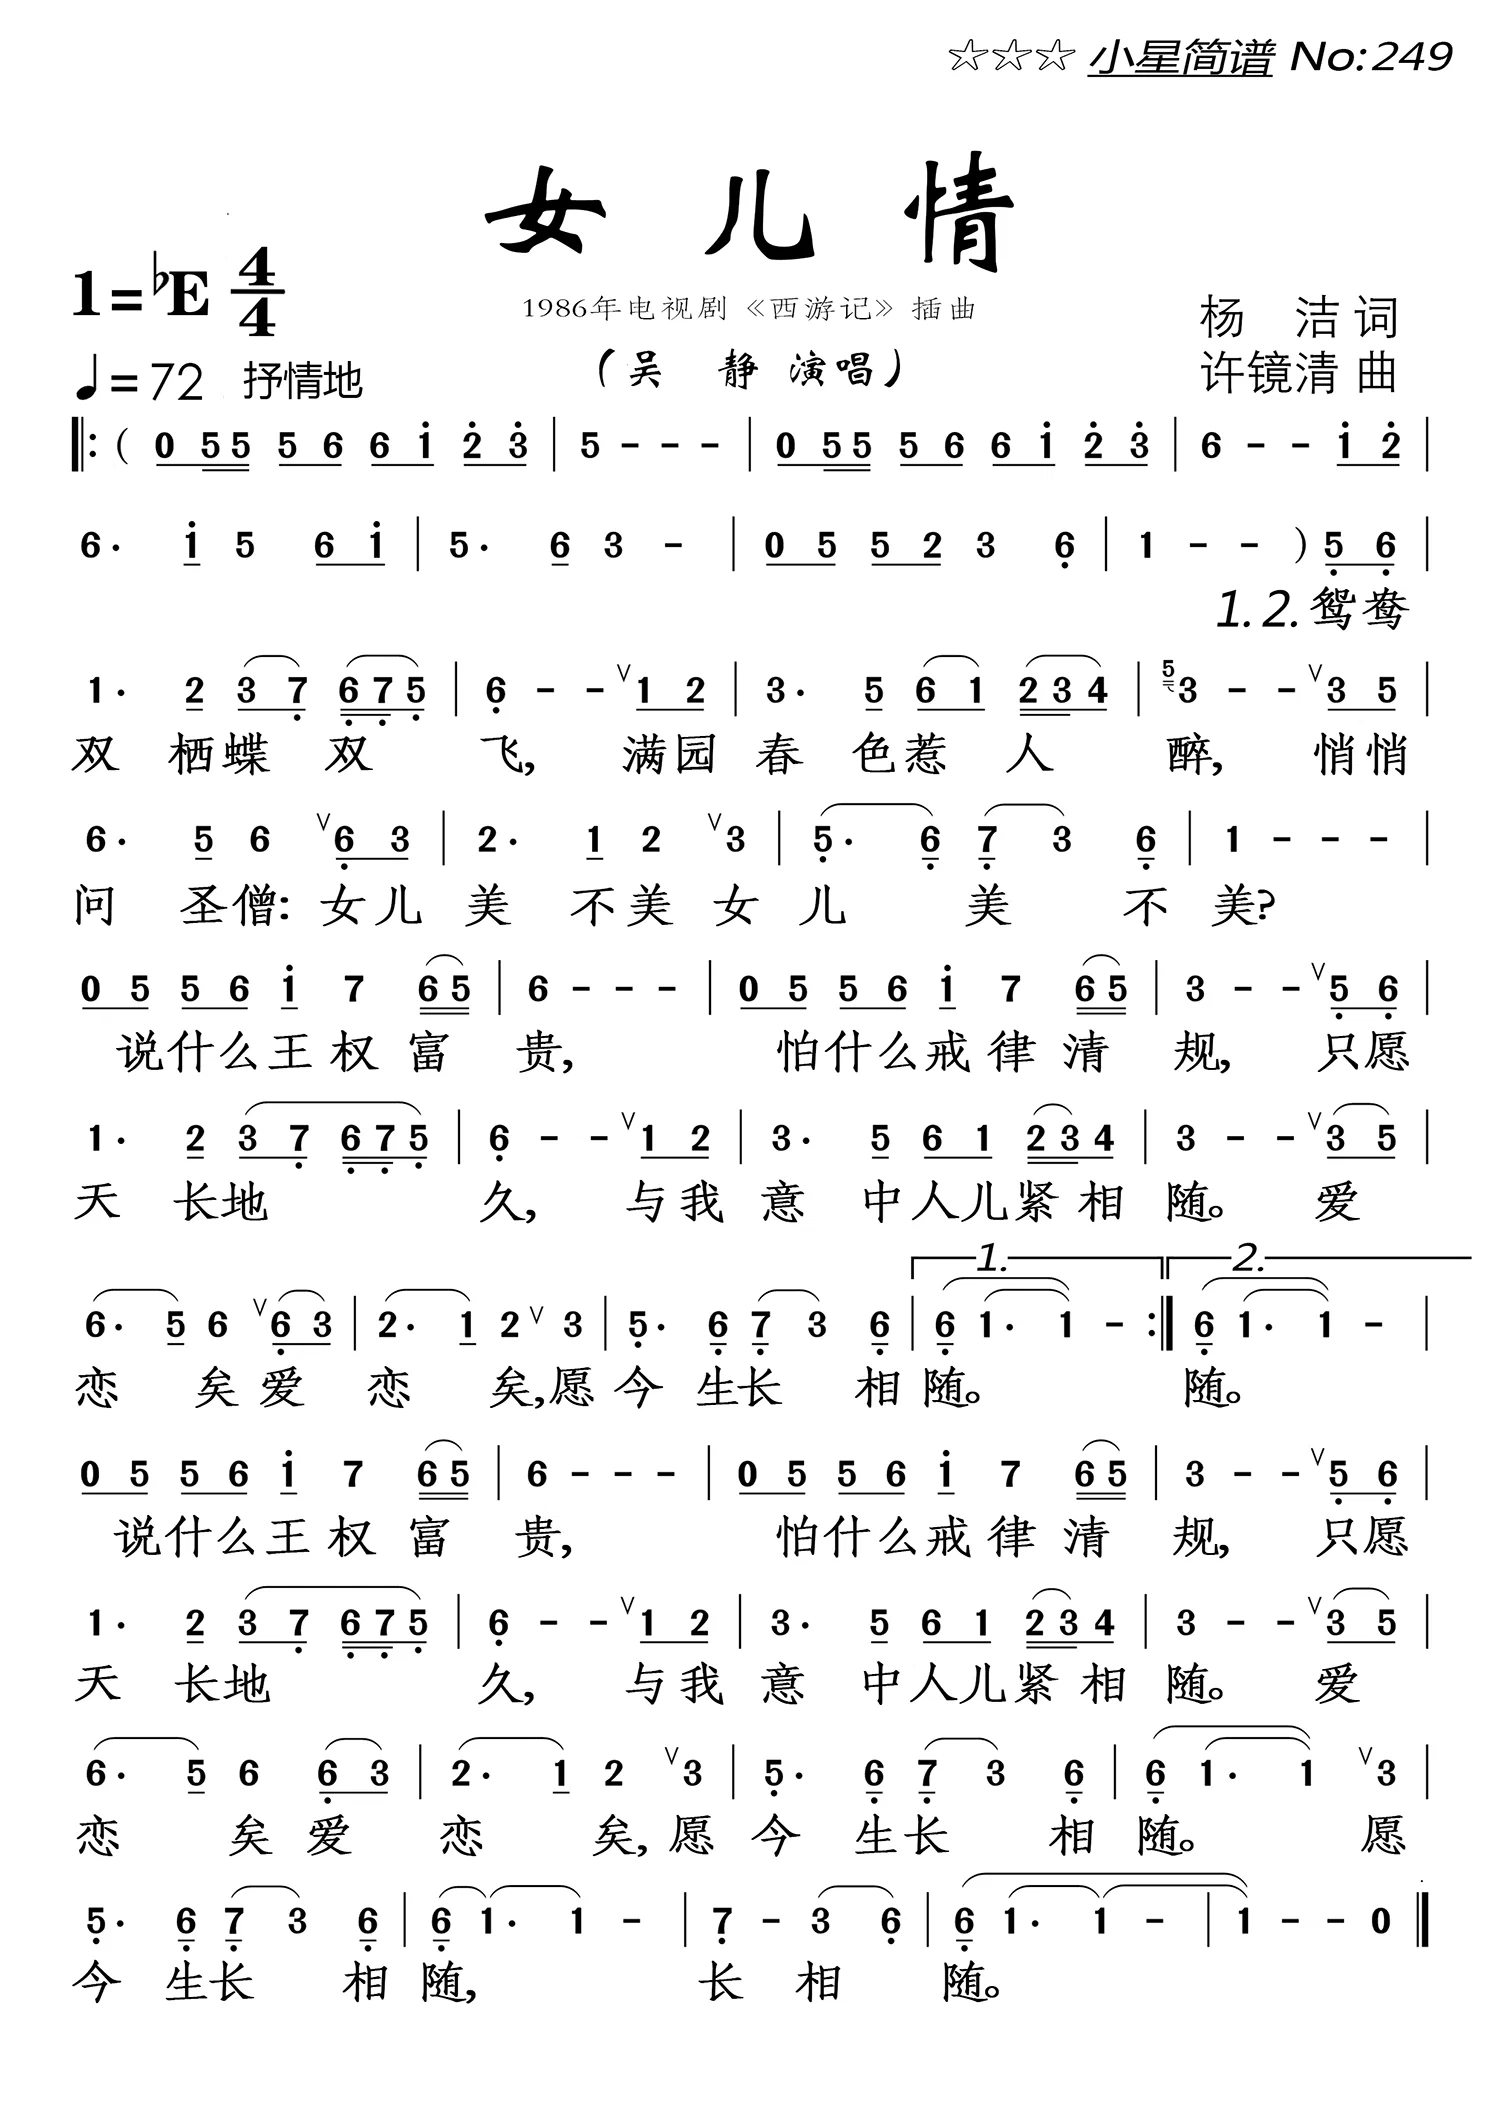 ☆☆☆ 小星简谱 No:249
女儿情
1=♭E 4/4
1986年电视剧《西游记》插曲
杨 洁 词
♩=72 抒情地
(吴 静 演唱)
许镜清 曲
‖: ( 0 5 5 5 6 6 i 2 3 | 5 - - - | 0 5 5 5 6 6 i 2 3 | 6 - - i 2 |
6. i 5 6 i | 5. 6 3 - | 0 5 5 2 3 6 | 1 - - ) 5 6 |
1. 2. 鸳鸯
1. 2 3 7 6 7 5 | 6 - - ∨ 1 2 | 3. 5 6 1 2 3 4 | 5 3 - - ∨ 3 5 |
双 栖蝶 双 飞, 满园 春 色惹 人 醉, 悄悄
6. 5 6 ∨ 6 3 | 2. 1 2 ∨ 3 | 5. 6 7 3 6 | 1 - - - |
问 圣僧: 女儿 美 不美 女 儿 美 不 美?
0 5 5 6 i 7 6 5 | 6 - - - | 0 5 5 6 i 7 6 5 | 3 - - ∨ 5 6 |
说什么王 权 富 贵, 怕什么戒 律 清 规, 只愿
1. 2 3 7 6 7 5 | 6 - - ∨ 1 2 | 3. 5 6 1 2 3 4 | 3 - - ∨ 3 5 |
天 长地 久, 与我 意 中人儿紧 相 随。 爱
1. 2.
6. 5 6 ∨ 6 3 | 2. 1 2 ∨ 3 | 5. 6 7 3 6 | 6 1. 1 - :‖ 6 1. 1 - |
恋 矣 爱 恋 矣,愿 今 生长 相 随。 随。
0 5 5 6 i 7 6 5 | 6 - - - | 0 5 5 6 i 7 6 5 | 3 - - ∨ 5 6 |
说什么王 权 富 贵, 怕什么戒 律 清 规, 只愿
1. 2 3 7 6 7 5 | 6 - - ∨ 1 2 | 3. 5 6 1 2 3 4 | 3 - - ∨ 3 5 |
天 长地 久, 与我 意 中人儿紧 相 随。 爱
6. 5 6 6 3 | 2. 1 2 ∨ 3 | 5. 6 7 3 6 | 6 1. 1 ∨ 3 |
恋 矣 爱 恋 矣, 愿 今 生长 相 随。 愿
5. 6 7 3 6 | 6 1. 1 - | 7 - 3 6 | 6 1. 1 - | 1 - - 0 ‖
今 生长 相 随, 长 相 随。